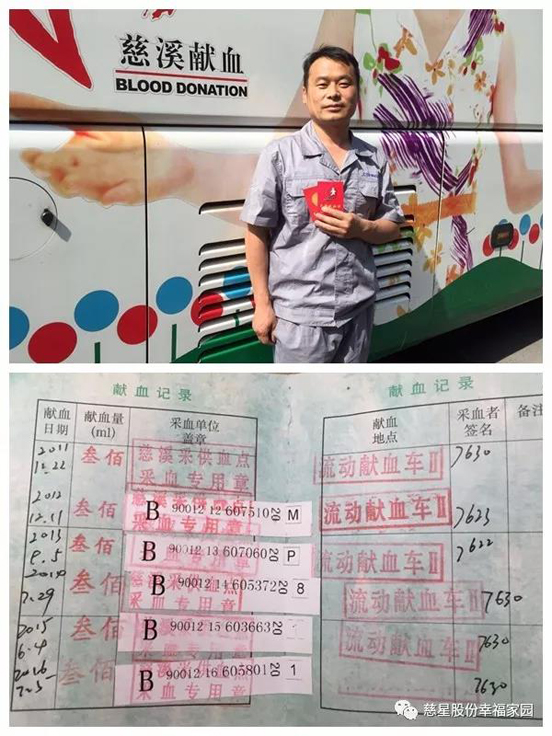 慈溪献血
BLOOD DONATION
献血记录
献血记录
献血日期
献血量(ml)
采血单位盖章
献血地点
采血者签名
备注
2011
11.22
叁佰
慈溪采供血点
采血专用章
流动献血车II
7630
2012
12.11
叁佰
B 90012 12 607510 20 M
流动献血车II
7623
2013
叁佰
B 90012 13 607060 20 P
流动献血车II
7622
7.29
叁佰
B 90012 14 605372 20 8
流动献血车II
7630
2015
6.4
叁佰
B 90012 15 603663 20
流动献血车II
7630
2016
叁佰
B 90012 16 605801 20 1
采血专用章
7630
慈星股份幸福家园